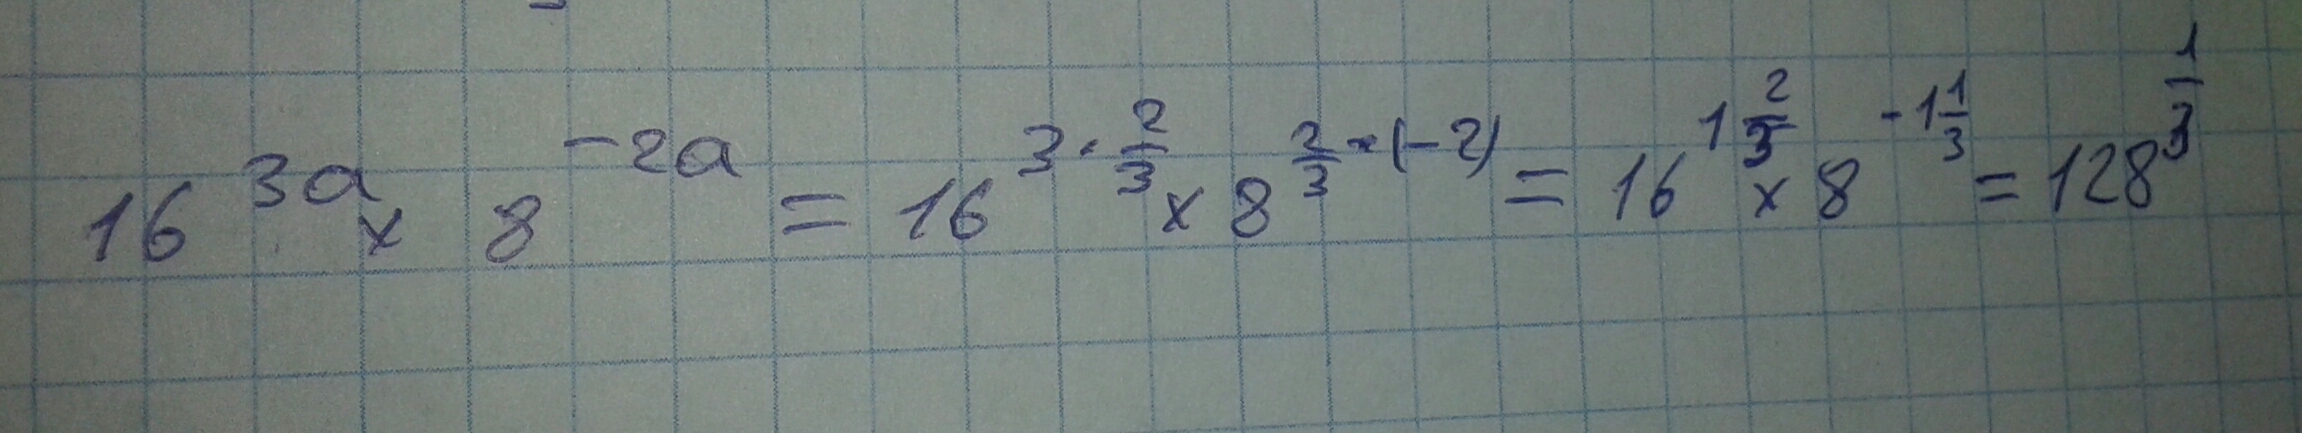 16^{3a} × 8^{-2a} = 16^{3·\frac{2}{3}} × 8^{\frac{2}{3}·(-2)} = 16^{1\frac{2}{3}} × 8^{-1\frac{1}{3}} = 128^{\frac{1}{3}}